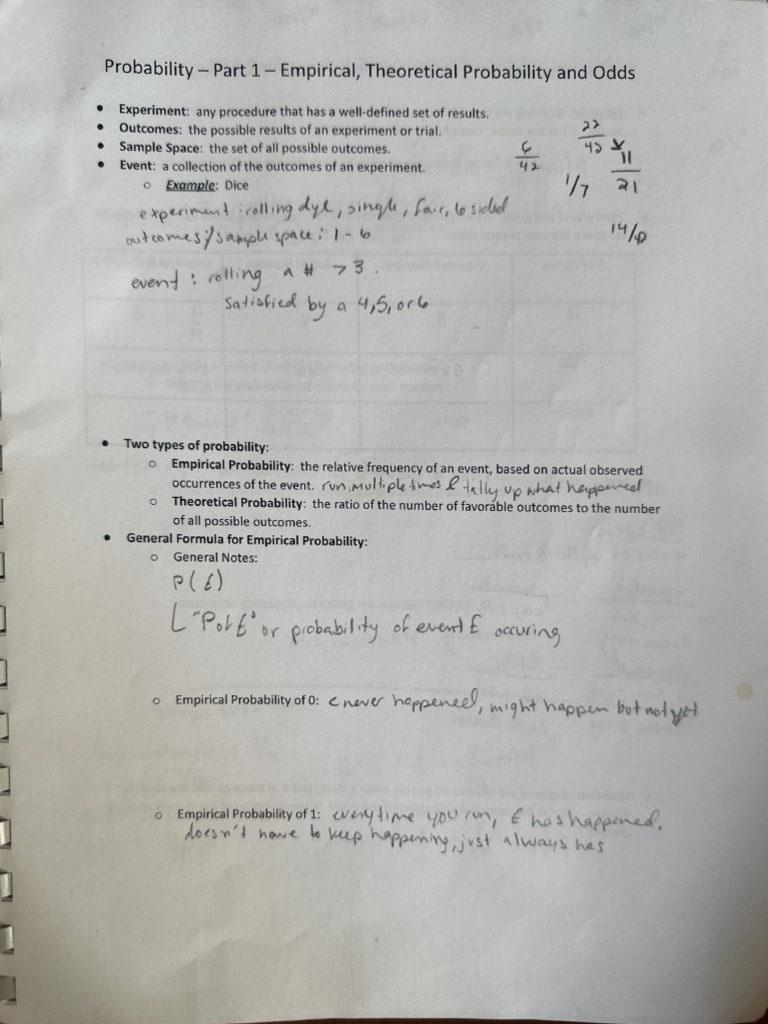 Probability – Part 1 – Empirical, Theoretical Probability and Odds
• Experiment: any procedure that has a well-defined set of results.
• Outcomes: the possible results of an experiment or trial.
• Sample Space: the set of all possible outcomes.
• Event: a collection of the outcomes of an experiment.
6/42
22/42
11/21
1/7
o Example: Dice
experiment: rolling dye, single, fair, 6 sided
outcomes/sample space: 1-6
event: rolling a # > 3.
satisfied by a 4,5, or 6
• Two types of probability:
o Empirical Probability: the relative frequency of an event, based on actual observed
occurrences of the event. run multiple times & tally up what happened
o Theoretical Probability: the ratio of the number of favorable outcomes to the number
of all possible outcomes.
• General Formula for Empirical Probability:
o General Notes:
P(E)
"P of E" or probability of event E occuring
o Empirical Probability of 0: E never happened, might happen but not yet
o Empirical Probability of 1: every time you run, E has happened.
doesn't have to keep happening, just always has